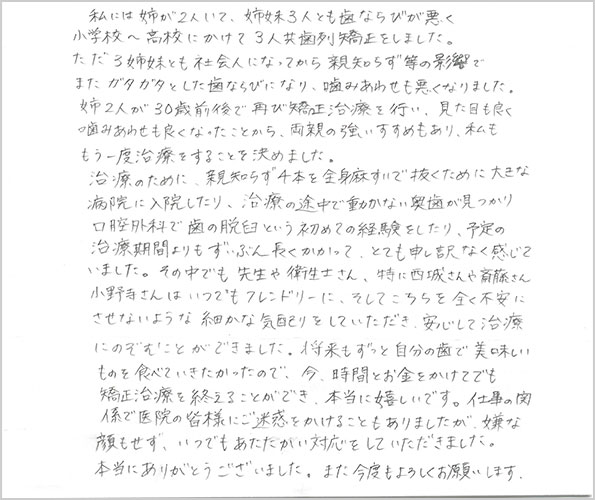 私には姉が2人いて、姉妹3人とも歯ならびが悪く
小学校〜高校にかけて3人共歯列矯正をしました。
ただ3姉妹とも社会人になってから親知らず等の影響で
またガタガタとした歯ならびになり、噛みあわせも悪くなりました。
姉2人が30歳前後で再び矯正治療を行い、見た目も良く
噛みあわせも良くなったことから、両親の強いすすめもあり、私も
もう一度治療をすることを決めました。
治療のために、親知らず4本を全身麻すいで抜くために大きな
病院に入院したり、治療の途中で動かない奥歯が見つかり
口腔外科で歯の脱臼という初めての経験をしたり、予定の
治療期間よりもずいぶん長くかかって、とても申し訳なく感じて
いました。その中でも先生や衛生士さん、特に西城さんや斎藤さん
小野寺さんはいつでもフレンドリーに、そしてこちらを全く不安に
させないような細かな気配りをしていただき、安心して治療
にのぞむことができました。将来もずっと自分の歯で美味しい
ものを食べていきたかったので、今、時間とお金をかけてでも
矯正治療を終えることができ、本当に嬉しいです。仕事の関
係で医院の皆様にご迷惑をかけることもありましたが、嫌な
顔もせず、いつでもあたたかい対応をしていただきました。
本当にありがとうございました。また今度もよろしくお願いします。